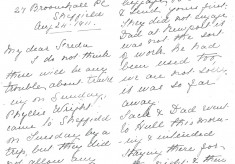 27 Broomhall Pl
Sheffield
Aug 24. 1911.
My dear Freda
I do not think
there will be any
trouble, about
my on Sunday.
Phyllis Wright
came to Sheffield
on Tuesday by a
tray but they did
not allow any
They did not engage
Dad at Newport
was not the sort
of work he had
been used too
we are not sorry
it was so far
away.
Jack & Dad went
to Hull this morn
ing & intended
staying there for